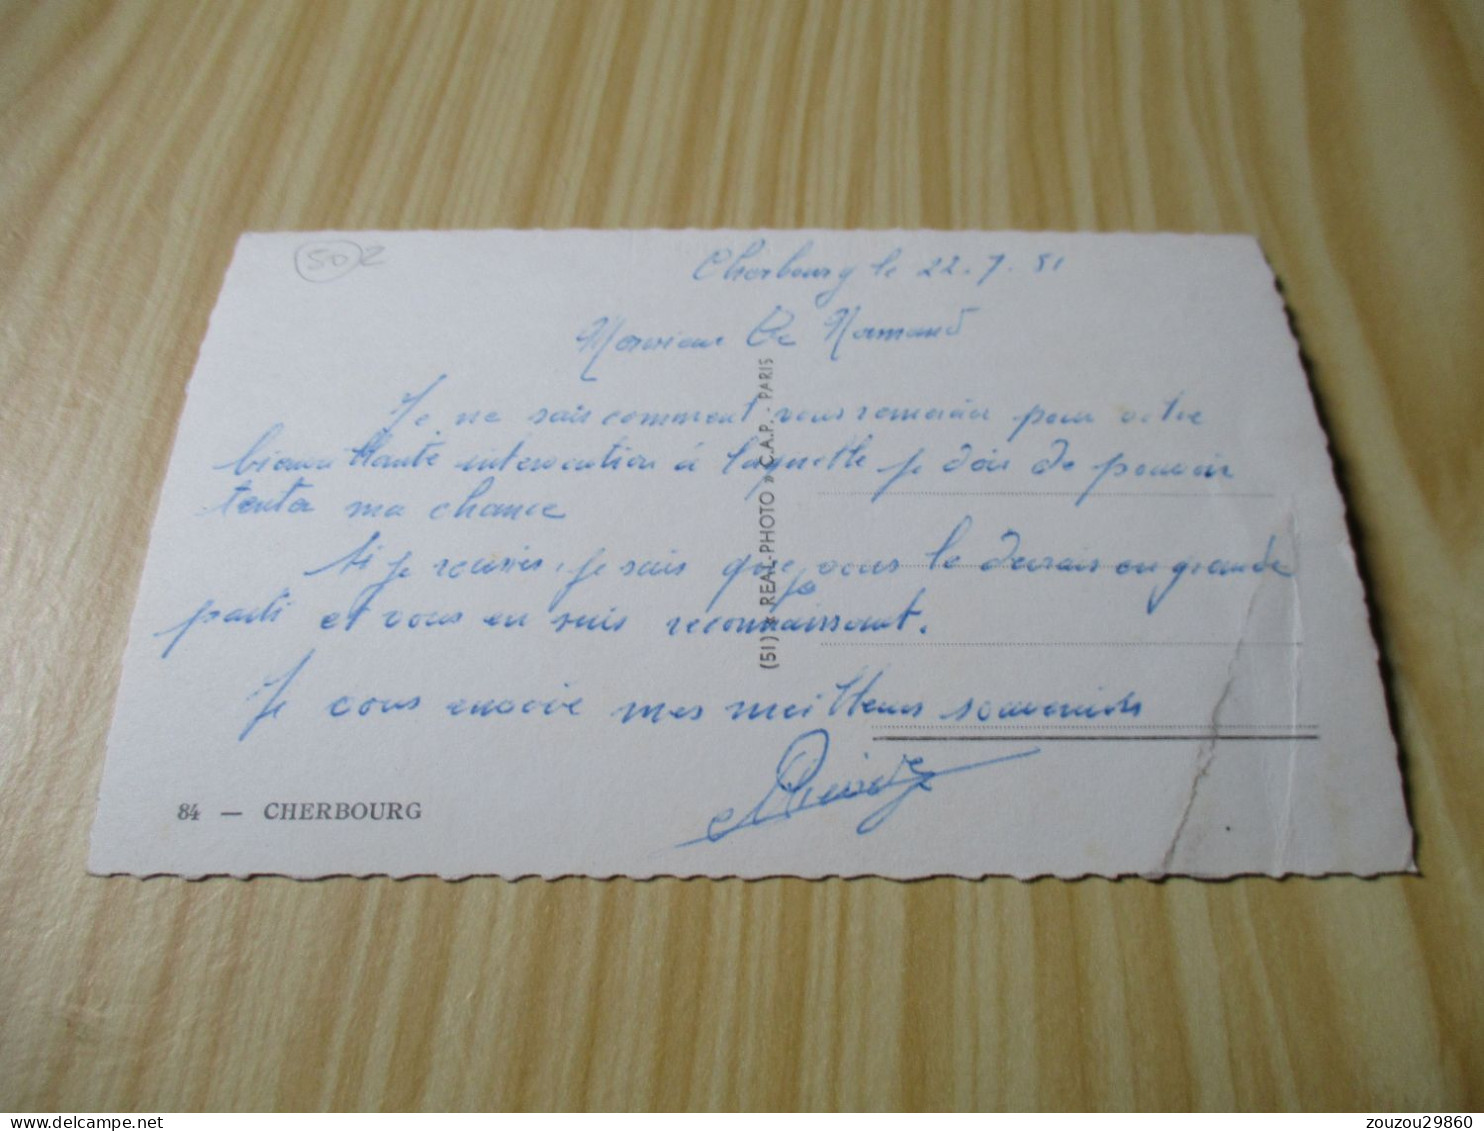 50 2
Cherbourg le 22.7.51
Monsieur Le Normand
Je ne sais comment vous remercier pour votre
bienveillante intervention à laquelle je dois de pouvoir
tenter ma chance
Si je reussis, je sais que je vous le devrais en grande
parti et vous en suis reconnaissant.
Je vous envoie mes meilleurs souvenirs
(51) « REAL-PHOTO » C.A.P. - PARIS
84 — CHERBOURG
zouzou29860